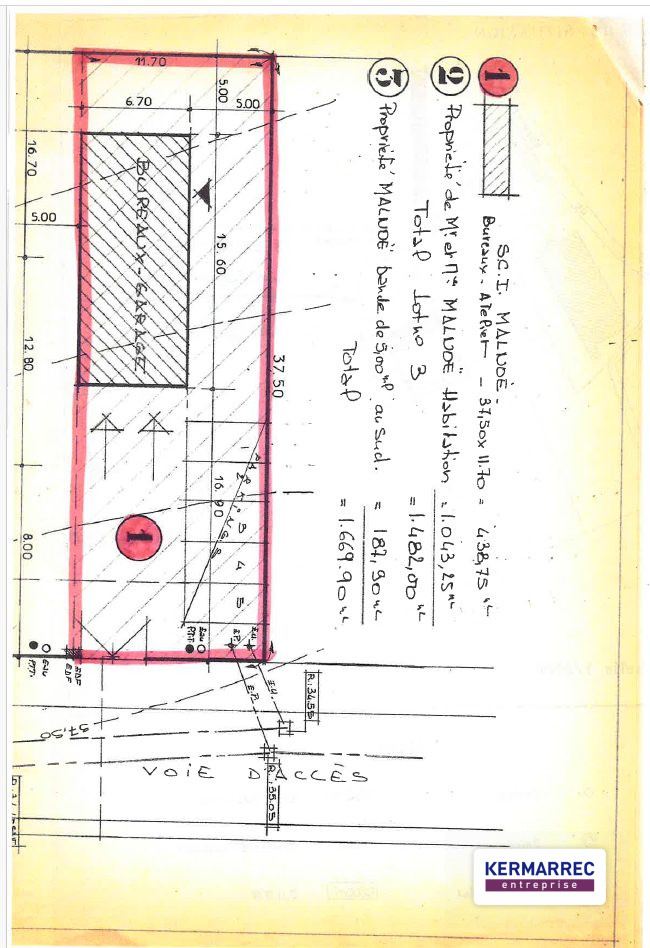 1
S.C.I. MALNOË.
Bureaux - Atelier - 37,50 x 11.70 = 438,75 m²
2
Propriété de Mr et Me MALNOË Habitation = 1.043,25 m²
Total lot no 3 = 1.482,00 m²
3
Propriété MALNOË bande de 5,00 ml au sud. = 187,90 m²
Total = 1.669.90 m²
11.70
6.70
5.00
5.00
16.70
5.00
BUREAUX - GARAGE
15.60
37.50
12.80
1
2
3
4
5
PARKINGS
16.90
1
8.00
EAU
PTT.
E.P.
E.U.
EDF
EDF
EAU
PTT.
E.U.
E.P.
R: 34.55
97,50
VOIE D'ACCÈS
R: 35.05
KERMARREC
entreprise